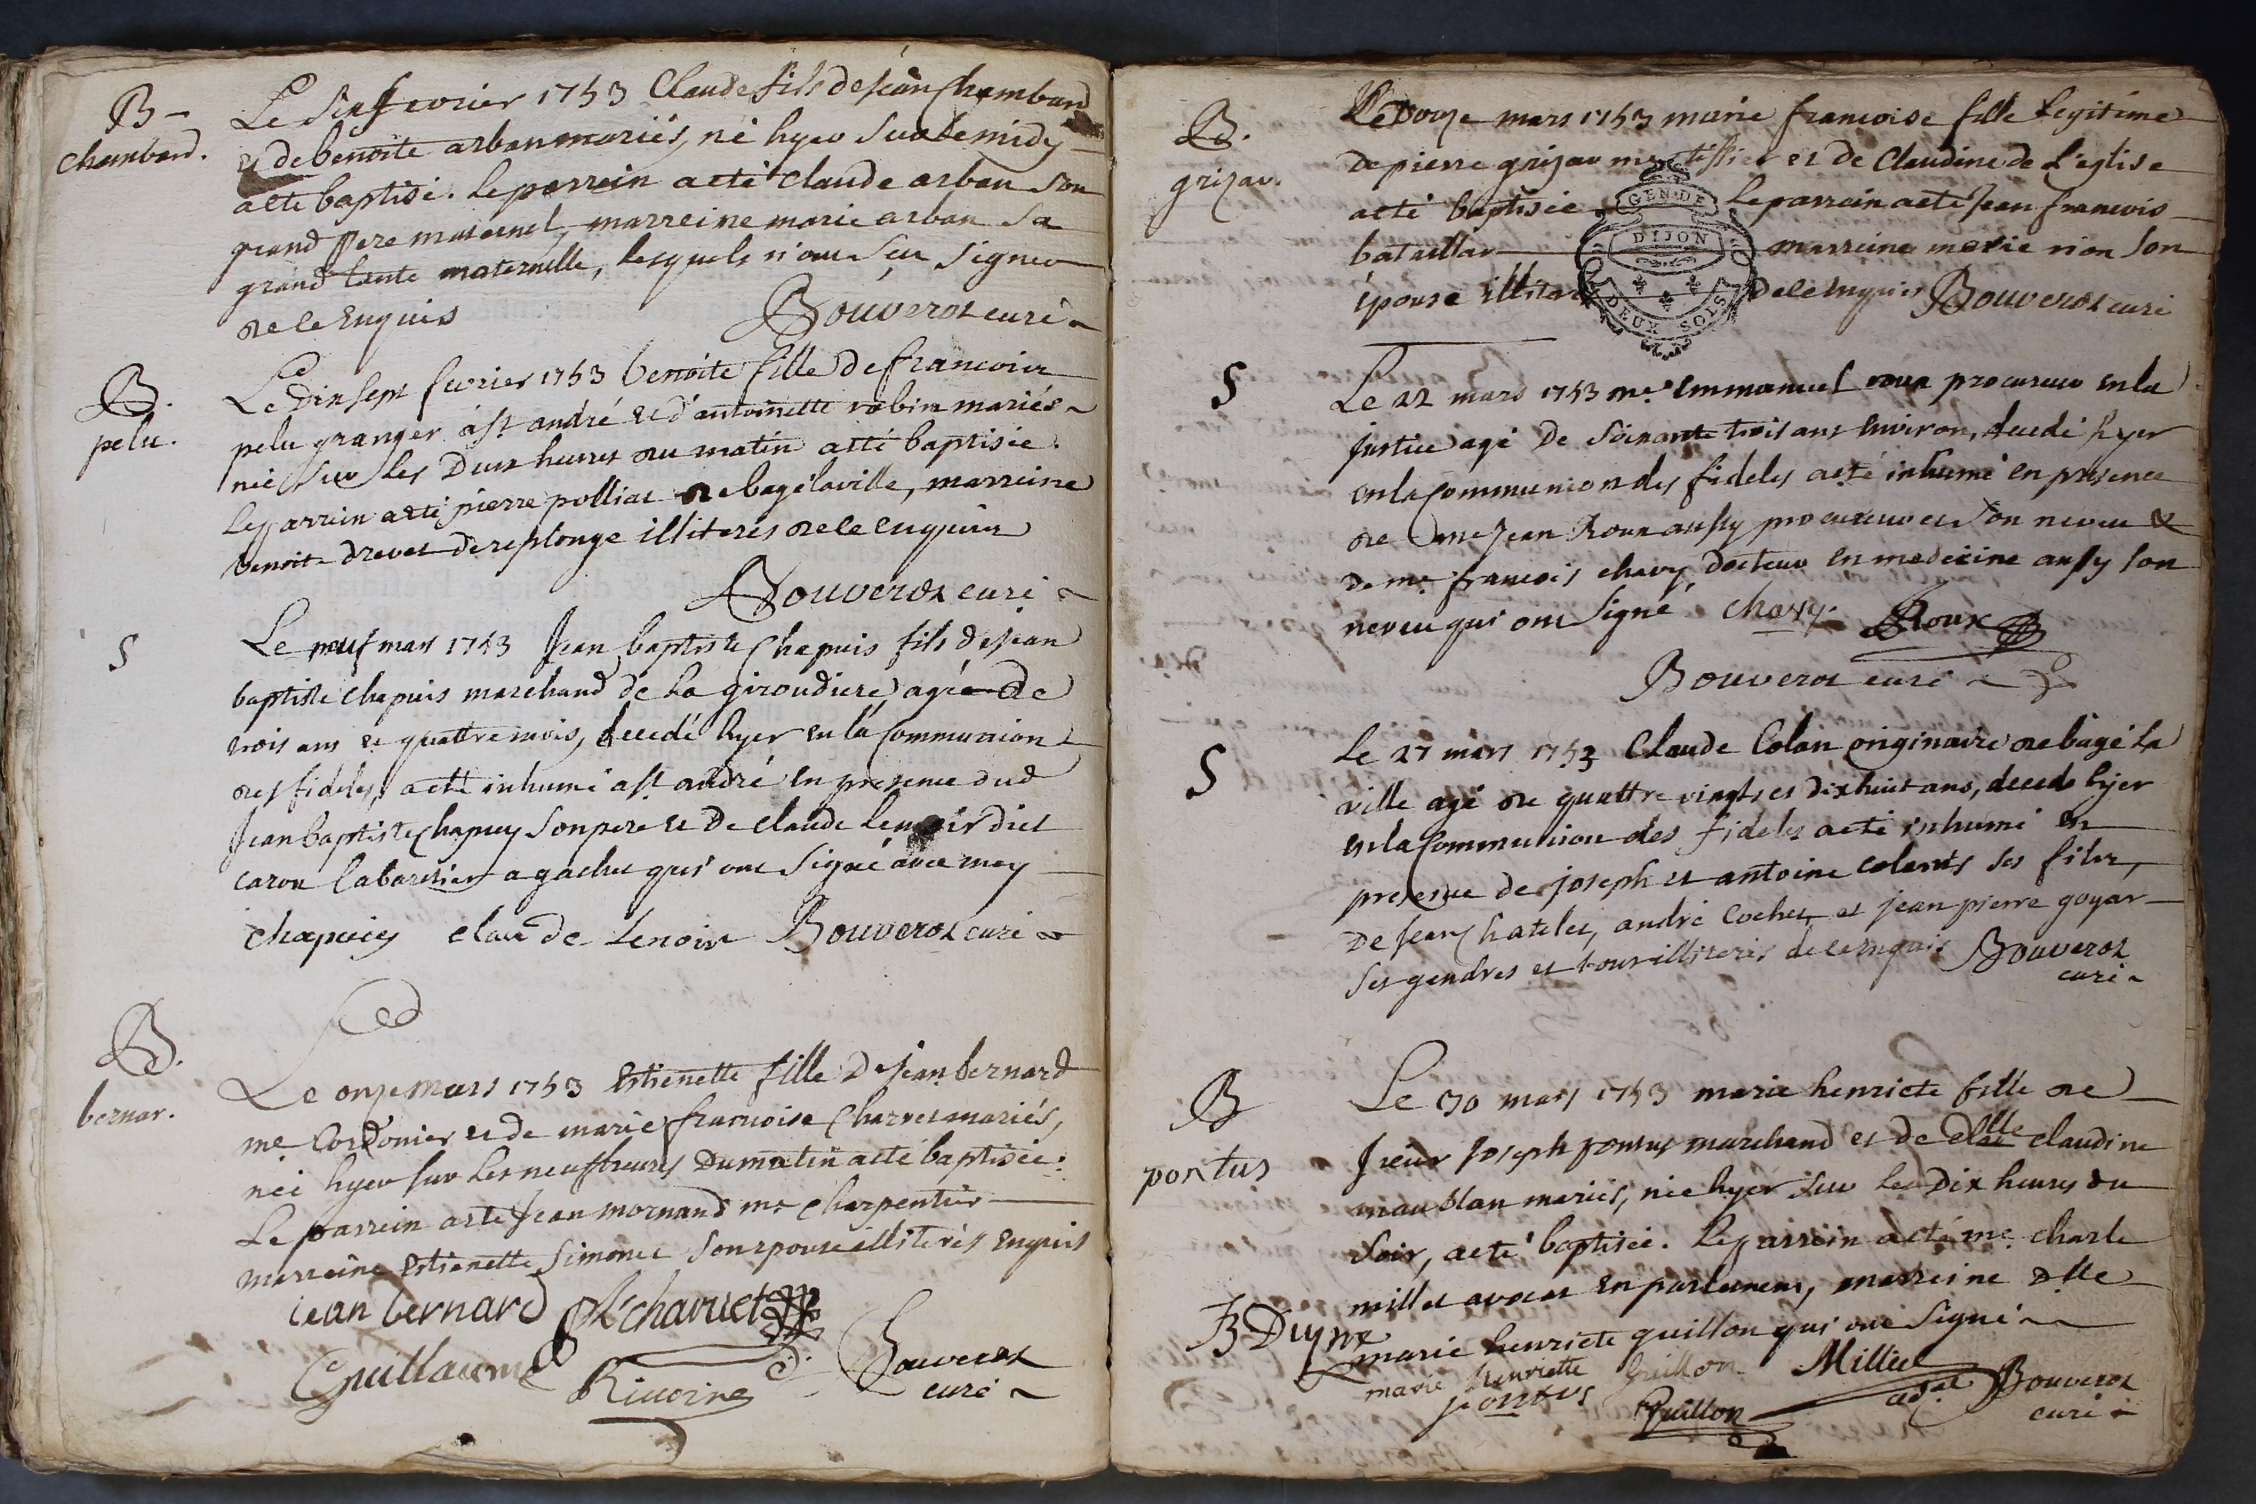 B -
chambard.
Le six fevrier 1753 Claude fils de jean Chambard
et de benoite arban mariés, né hyer sur le midy
a eté baptisé. le parrein a eté claude arban son
grand pere maternel, marreine marie arban sa
grand tante maternelle, lesquels n'ont sçu signer
de ce enquis
Bouverot curé
B.
pelu.
Le dix sept fevrier 1753 benoite fille de francois
pelu granger à st andré et d'antoinette robin mariés
née sur les deux heures du matin a eté baptisée.
le parrein a eté pierre polliat de bagé la ville, marreine
benoite drevet de replonge illiterés de ce enquis
Bouverot curé
S
Le neuf mars 1753 Jean baptiste Chapuis fils de jean
baptiste chapuis marchand de la giroudiere, agé de
trois ans et quattre mois, decedé hyer en la Communion
des fideles, a eté inhumé a st andré en presence dud
Jean baptiste Chapuy son pere et de claude lenoir dict
caron Cabaretier a gachet qui ont signé avec moy
chapuiy claude Lenoir Bouverot curé
B.
bernar.
Le onze mars 1753 Estienette fille de jean bernard
me Cordonier et de marie francoise Charvet mariés,
née hyer sur les neuf heures du matin a eté baptisée.
Le parrein a eté Jean mornand me charpentier
marreine Estienette Simonet son epouse illiterés enquis
jean bernard charvet
Guillaume Rivoire
Bouverot
curé
B.
grizar.
Le douze mars 1753 marie francoise fille legitime
de pierre grizar me tissier et de Claudine de L'eglise
a eté baptisée. Le parrein a eté Jean francois
bataillar marreine marie rion son
épouse illiterés de ce enquis Bouverot curé
GEN.DE
DIJON
DEUX SOLS
S
Le 22 mars 1753 me. Emmanuel roux procureur en la
justice agé de soixante trois ans environ, decedé hyer
en la Communion des fideles a eté inhumé en presence
de me Jean Roux aussy procureur et son neveu &
de me. francois chavy, docteur en medecine aussy son
neveu qui ont signé chavy. Roux
Bouverot curé
S
Le 27 mars 1753 Claude Colan originaire de bagé la
ville agé de quattre vingts et dixhuit ans, decedé hyer
en la Communion des fideles a eté inhumé en
presence de joseph et antoine colants ses fils,
de Jean Chatelet, andré Cochet, et jean pierre goyar
ses gendres et tous illiterés de ce enquis Bouverot
curé
B
pontus
Le 30 mars 1753 marie henriete fille de
sieur Joseph pontus marchand et de dlle claudine
maublan mariés, née hyer sur les dix heures du
soir, a eté baptisée. Le parrein a eté me. charle
millet avocat en parlement, marreine dlle
marie henriete guillon qui ont signé
marie henriette guillon Milliet
pontus Guillon Bouverot
curé